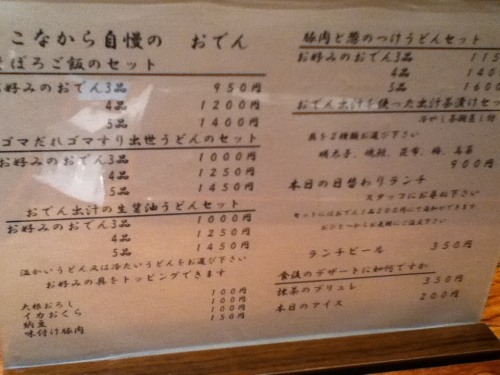 こなから自慢の おでん
そぼろご飯のセット
お好みのおでん3品 950円
4品 1200円
5品 1400円
ゴマだれゴマすり出世うどんのセット
お好みのおでん3品 1000円
4品 1250円
5品 1450円
おでん出汁の生醤油うどんセット
お好みのおでん3品 1000円
4品 1250円
5品 1450円
温かいうどん又は冷たいうどんをお選び下さい
お好みの具をトッピングできます
大根おろし 100円
イカおくら 100円
納豆 100円
味付け豚肉 150円
豚肉と葱のつけうどんセット
お好みのおでん3品 115
4品 140
5品 160
おでん出汁を使った出汁茶漬けセット
具を2種類お選び下さい
明太子、塩鮭、昆布、梅、高菜
900円
本日の日替わりランチ
スタッフにお尋ね下さい
セットにはおでん1品200円で追加ができます
ランチビール 350円
食後のデザートに如何ですか
抹茶のブリュレ 350円
本日のアイス 200円